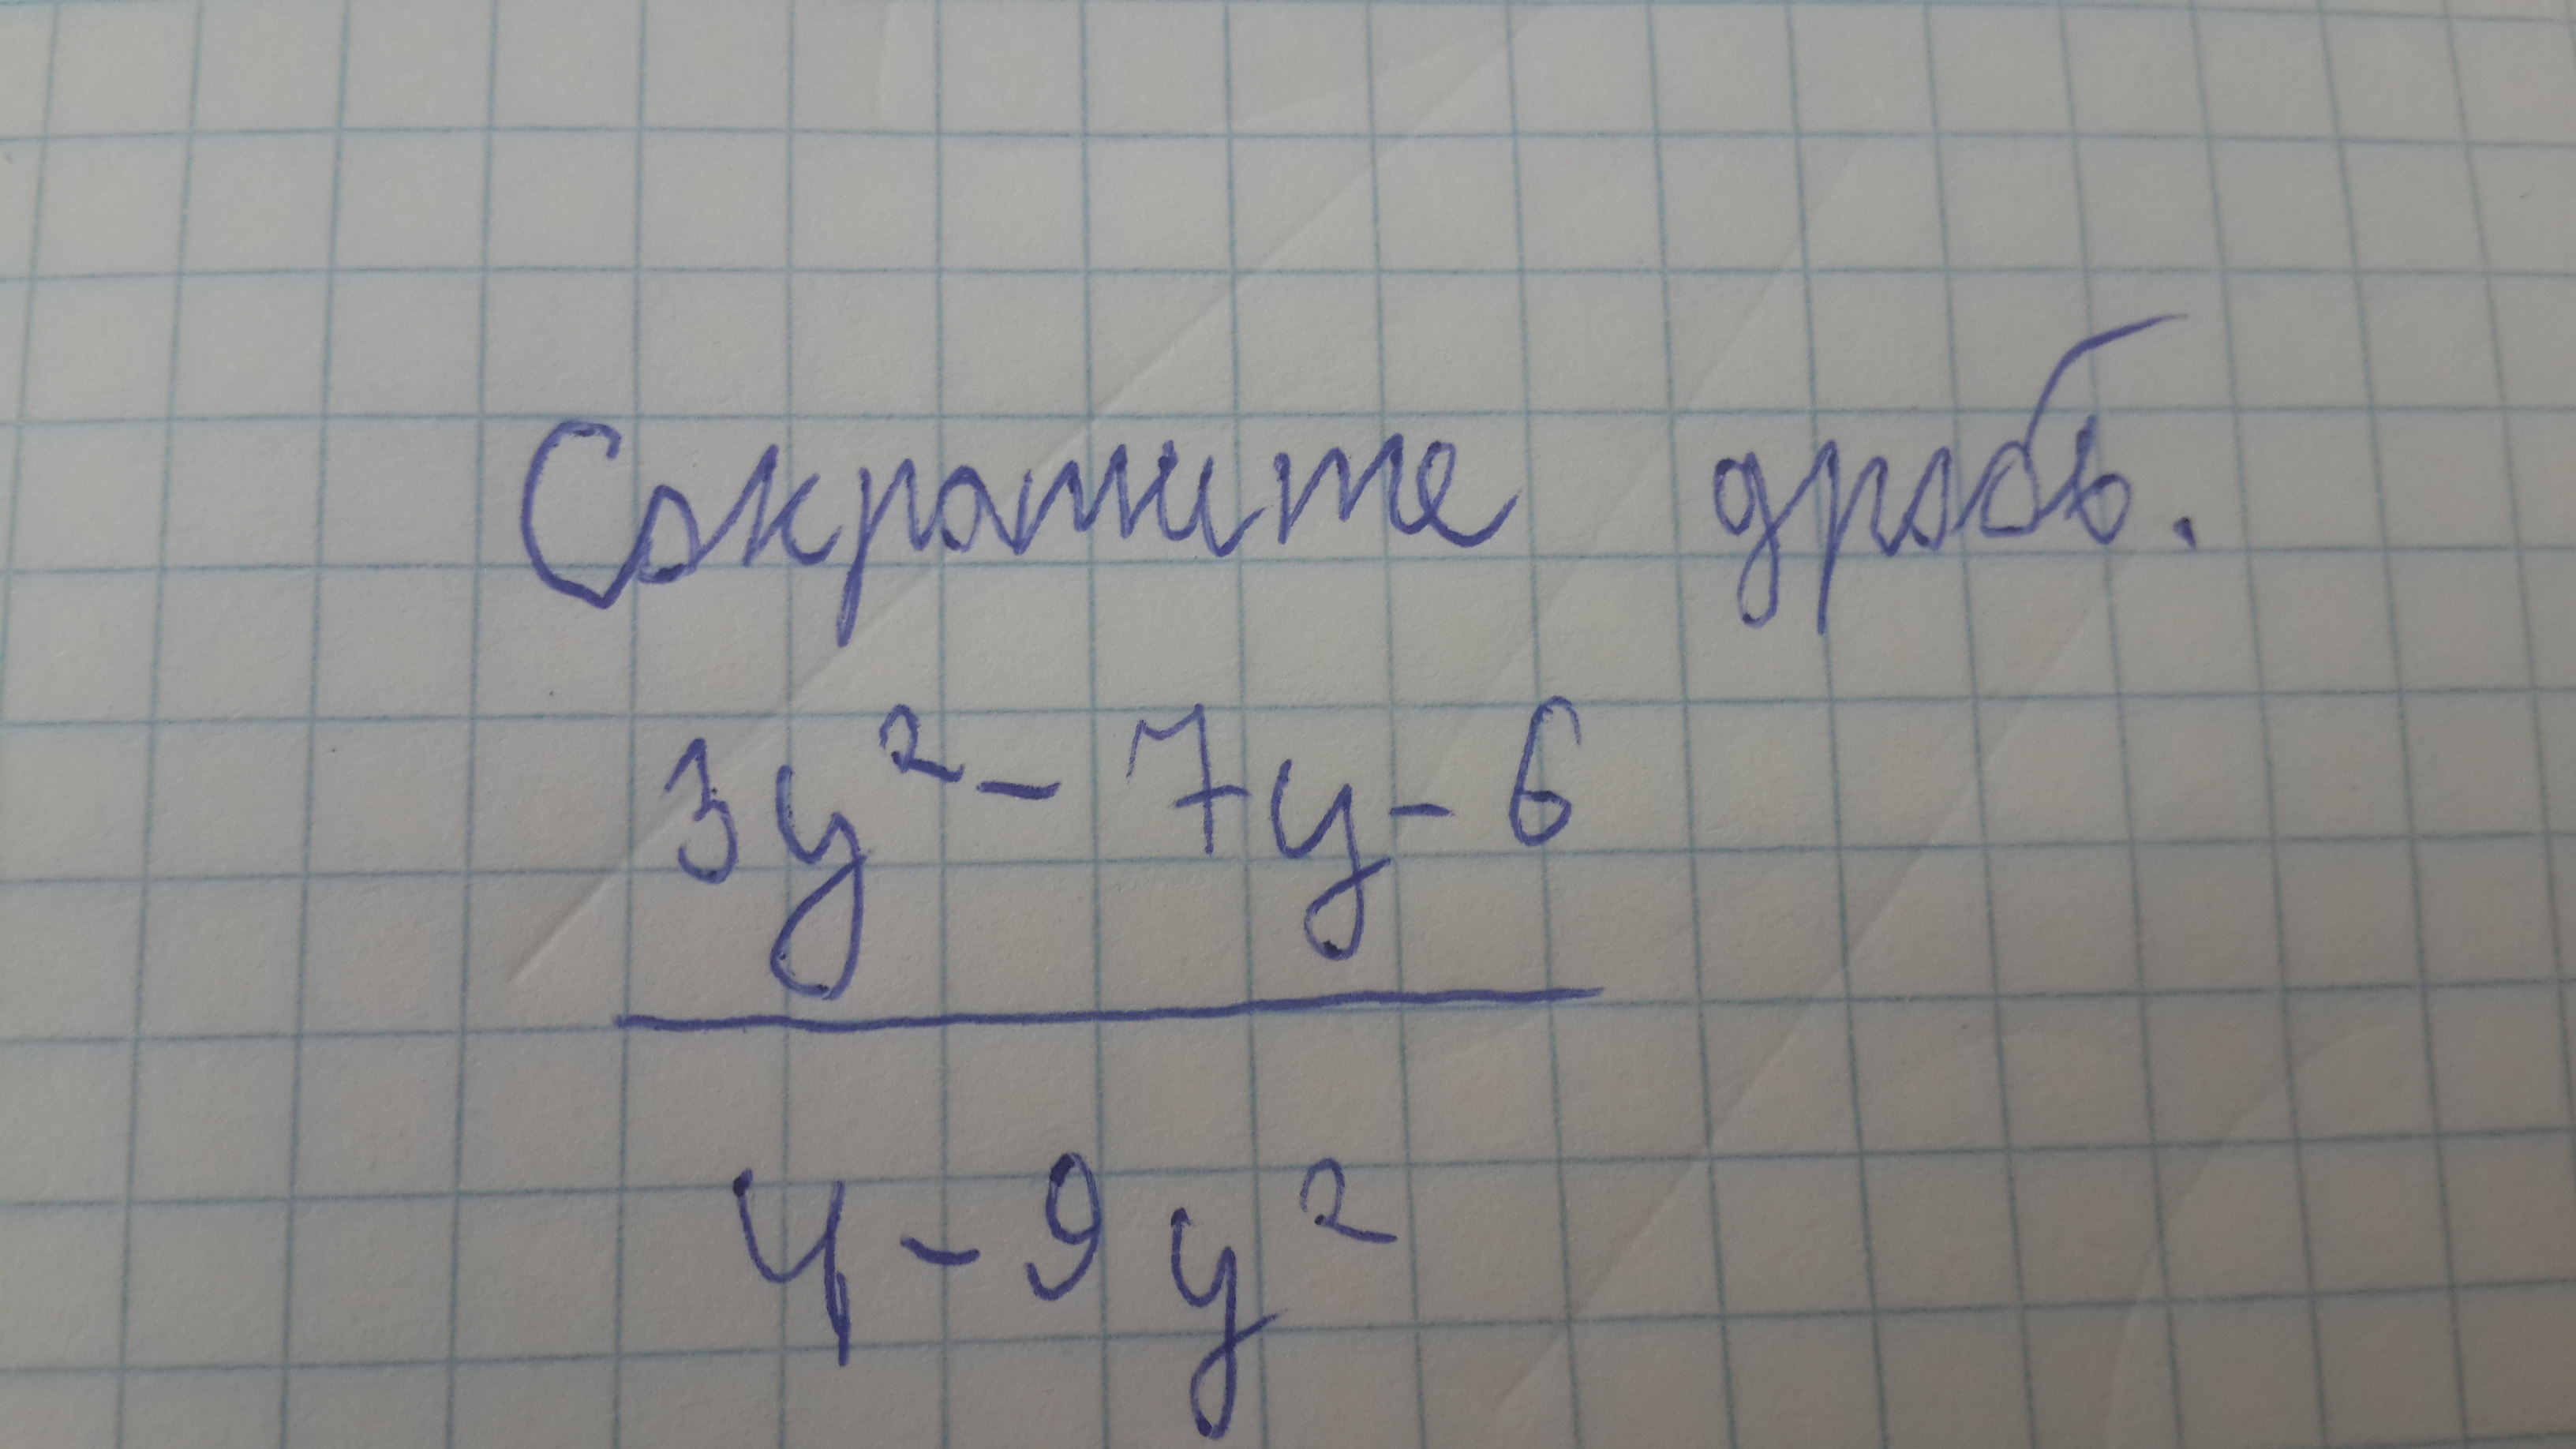 Сократите дробь.
3y² - 7y - 6
4 - 9y²